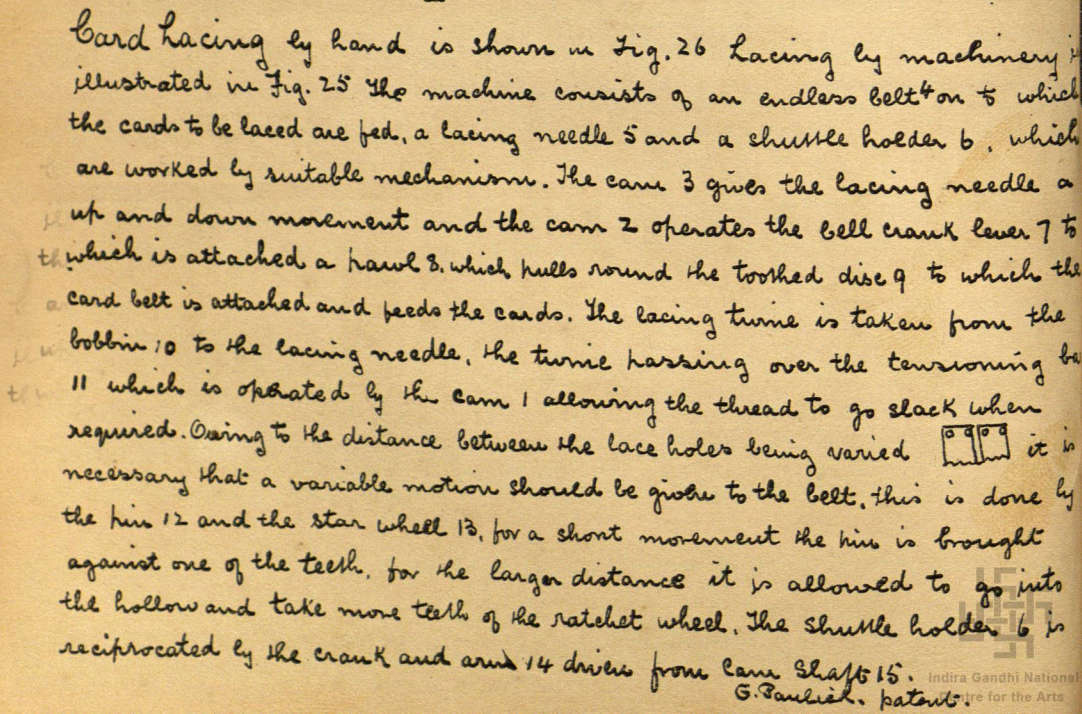 Card Lacing by hand is shown in Fig. 26 Lacing by machinery is
illustrated in Fig. 25 The machine consists of an endless belt 4 on to which
the cards to be laced are fed, a lacing needle 5 and a shuttle holder 6, which
are worked by suitable mechanism. The cam 3 gives the lacing needle a
up and down movement and the cam 2 operates the bell crank lever 7 to
which is attached a pawl 8, which pulls round the toothed disc 9 to which the
card belt is attached and feeds the cards. The lacing twine is taken from the
bobbin 10 to the lacing needle, the twine passing over the tensioning ba
11 which is operated by the cam 1 allowing the thread to go slack when
required. Owing to the distance between the lace holes being varied it is
necessary that a variable motion should be given to the belt, this is done by
the pin 12 and the star wheel 13, for a short movement the pin is brought
against one of the teeth, for the larger distance it is allowed to go into
the hollow and take more teeth of the ratchet wheel. The shuttle holder 6 is
reciprocated by the crank and arm 14 driven from Cam Shaft 15.
G. patent.
Indira Gandhi National
Centre for the Arts